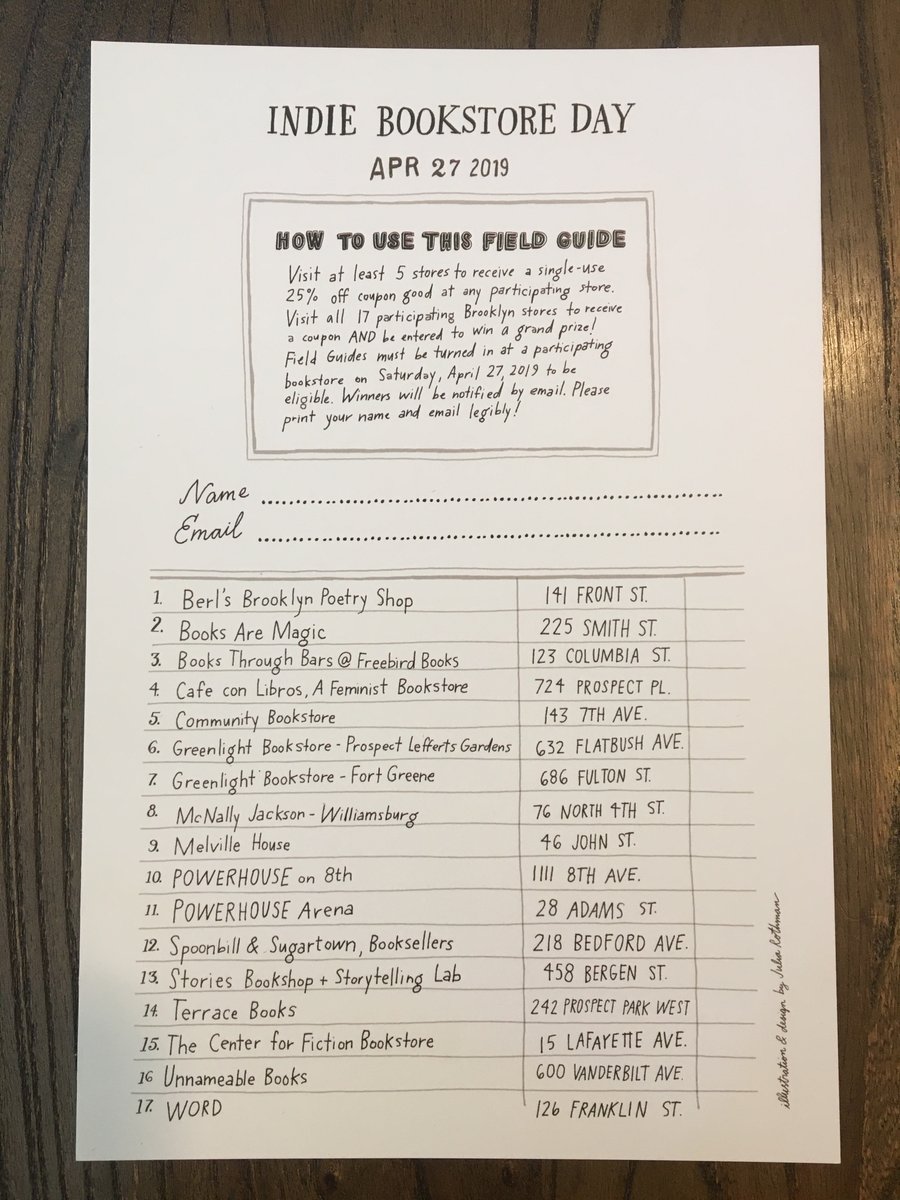 INDIE BOOKSTORE DAY
APR 27 2019
HOW TO USE THIS FIELD GUIDE
Visit at least 5 stores to receive a single-use
25% off coupon good at any participating store.
Visit all 17 participating Brooklyn stores to receive
a coupon AND be entered to win a grand prize!
Field Guides must be turned in at a participating
bookstore on Saturday, April 27, 2019 to be
eligible. Winners will be notified by email. Please
print your name and email legibly!
Name
Email
1. Berl's Brooklyn Poetry Shop 141 FRONT ST.
2. Books Are Magic 225 SMITH ST.
3. Books Through Bars @ Freebird Books 123 COLUMBIA ST.
4. Cafe con Libros, A Feminist Bookstore 724 PROSPECT PL.
5. Community Bookstore 143 7TH AVE.
6. Greenlight Bookstore - Prospect Lefferts Gardens 632 FLATBUSH AVE.
7. Greenlight Bookstore - Fort Greene 686 FULTON ST.
8. McNally Jackson - Williamsburg 76 NORTH 4TH ST.
9. Melville House 46 JOHN ST.
10. POWERHOUSE on 8th 1111 8TH AVE.
11. POWERHOUSE Arena 28 ADAMS ST.
12. Spoonbill & Sugartown, Booksellers 218 BEDFORD AVE.
13. Stories Bookshop + Storytelling Lab 458 BERGEN ST.
14. Terrace Books 242 PROSPECT PARK WEST
15. The Center for Fiction Bookstore 15 LAFAYETTE AVE.
16 Unnameable Books 600 VANDERBILT AVE.
17. WORD 126 FRANKLIN ST.
illustration & design by Julia Rothman